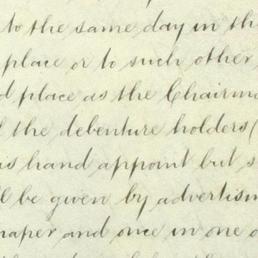 to the same day in th
place or to such other
d place as the Chairma
the debenture holders (
hand appoint but s
be given by advertism
and once in one o